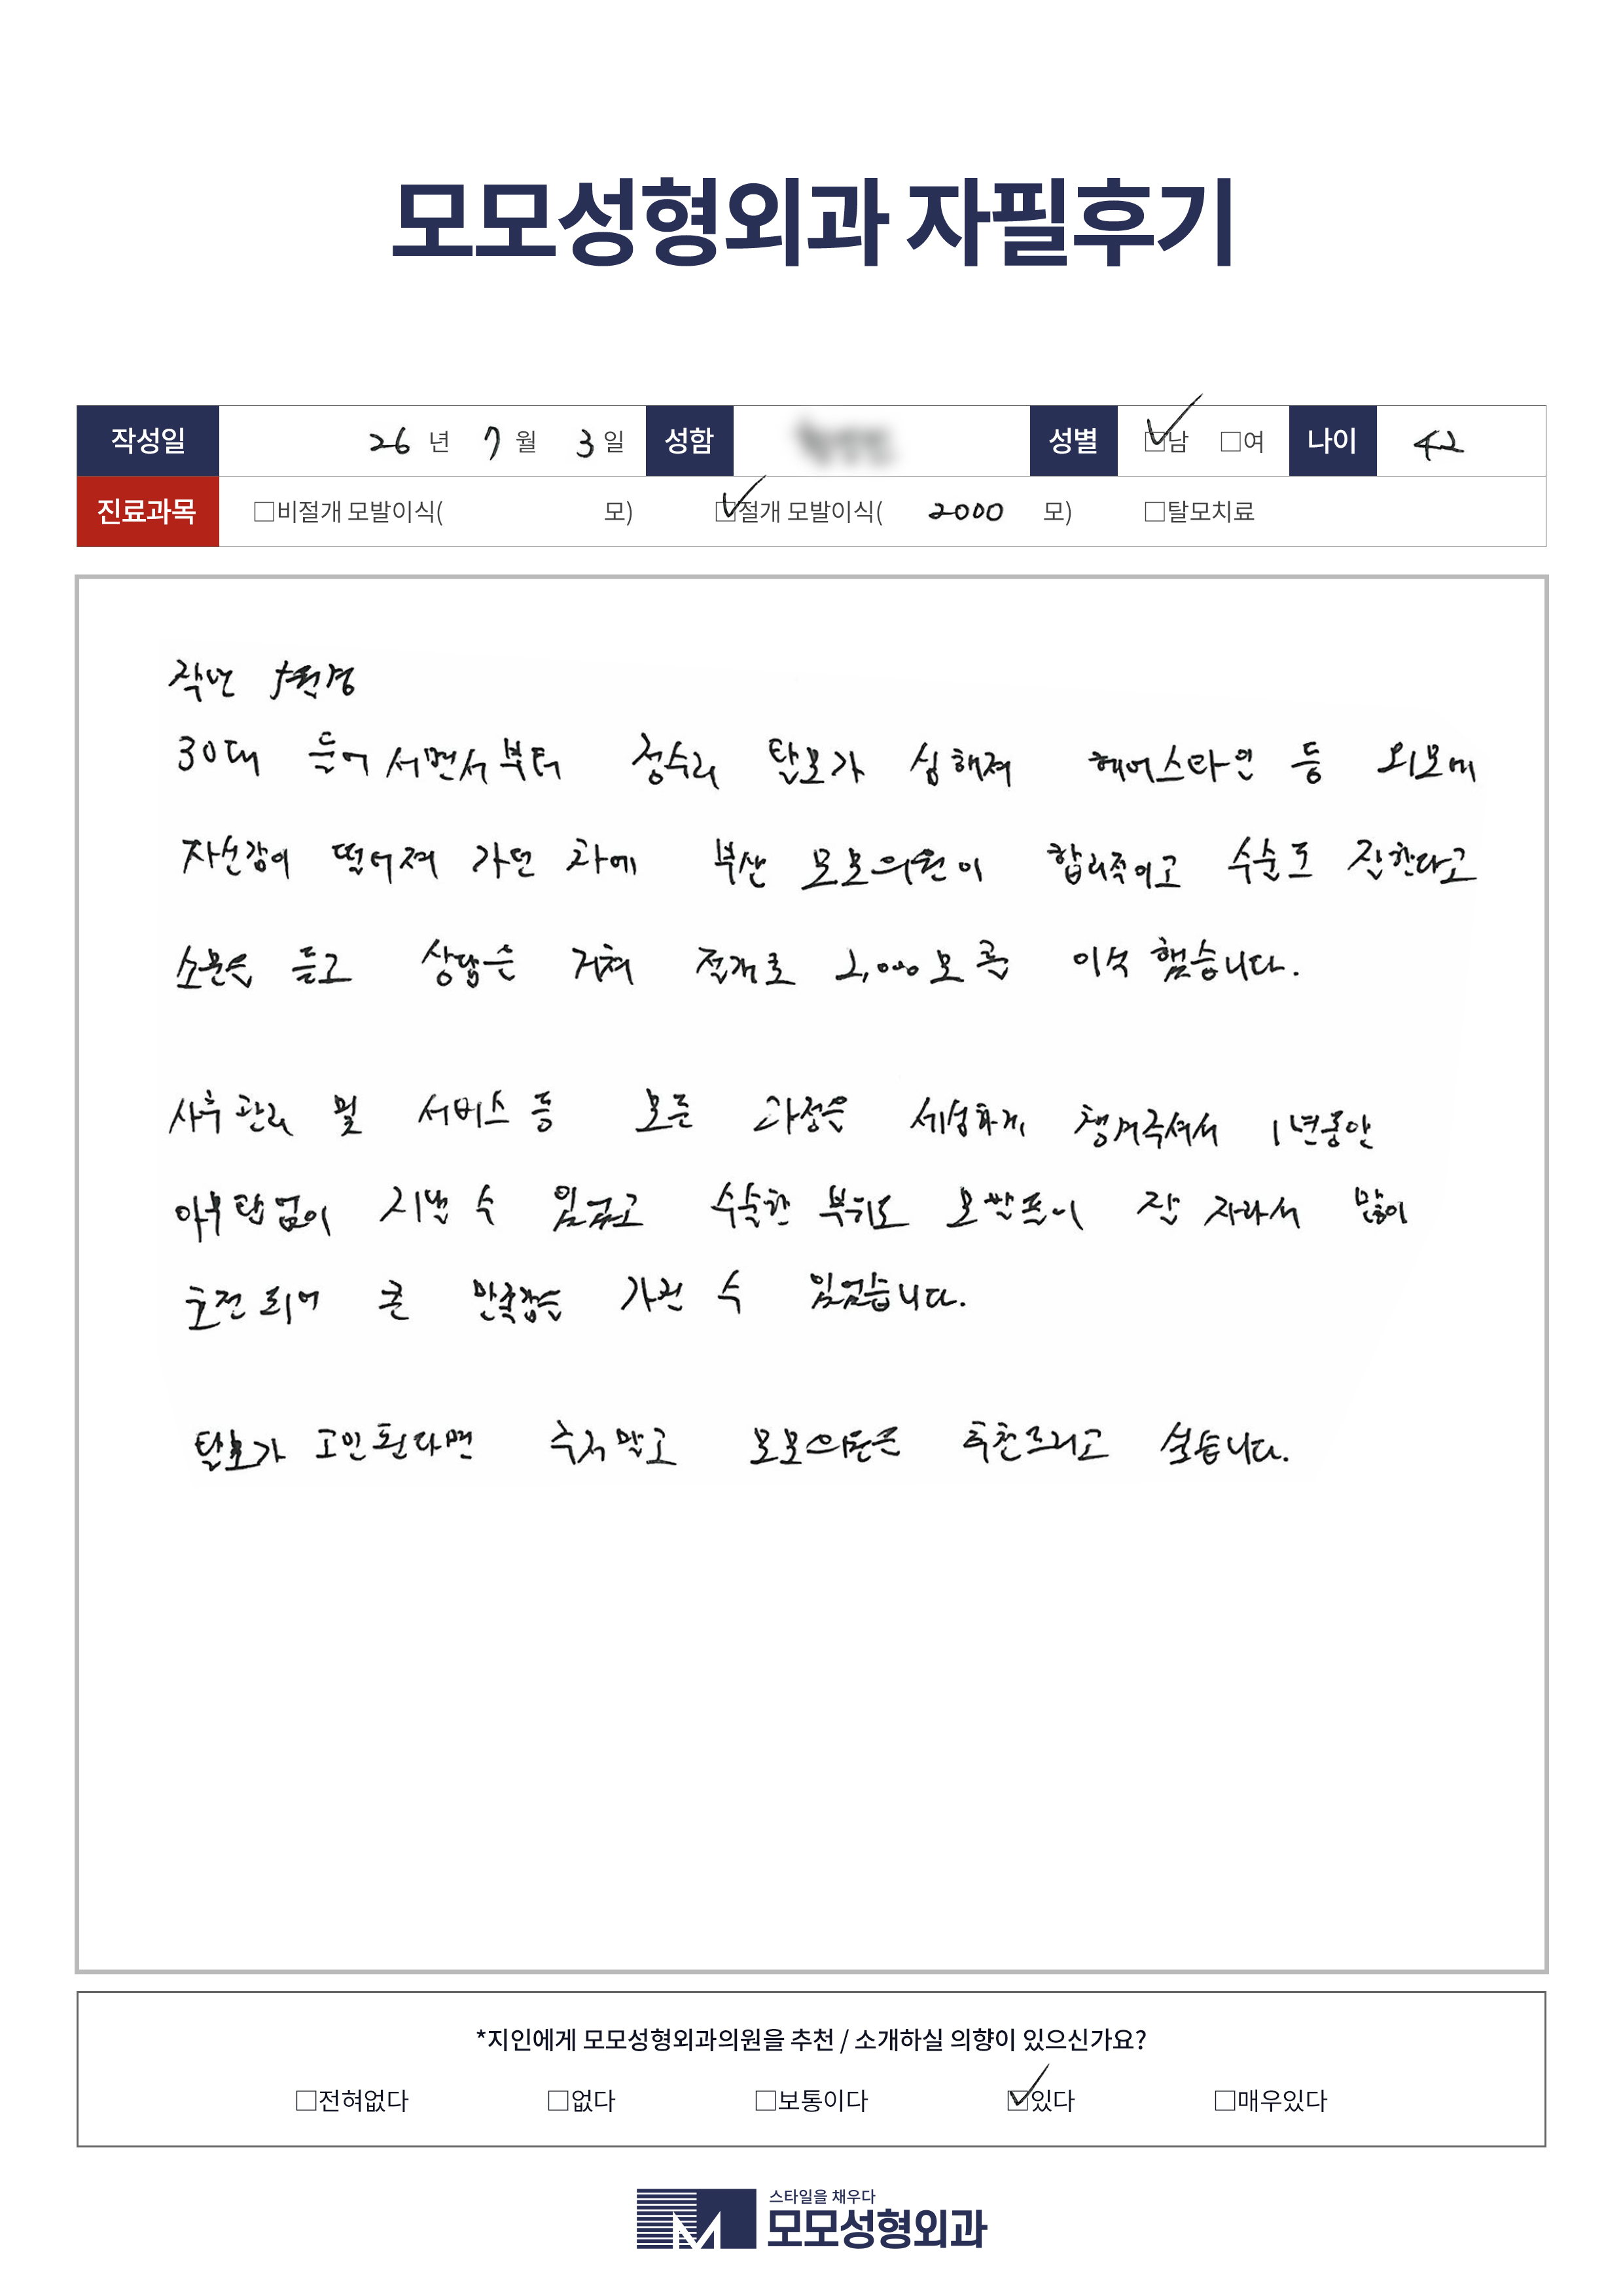 모모성형외과 자필후기
작성일 26 년 7 월 3 일 성함 성별 □남 □여 나이 42
진료과목 □비절개 모발이식( 모) □절개 모발이식( 2000 모) □탈모치료
작년
30대 들어서면서부터 정수리 탈모가 심해져 헤어스타일 등 외모에
자신감이 떨어져 가던 차에 부산 모모의원이 합리적이고 수술도 잘한다고
소문을 듣고 상담을 거쳐 절개로 2,000모를 이식 했습니다.
사후관리 및 서비스 등 모든 과정을 세심하게 챙겨주셔서 1년동안
아무탈없이 지낼 수 있었고 수술한 부위도 모발들이 잘 자라서 많이
호전되어 큰 만족감을 가질 수 있었습니다.
탈모가 고민된다면 주저말고 모모의원을 추천드리고 싶습니다.
*지인에게 모모성형외과의원을 추천 / 소개하실 의향이 있으신가요?
□전혀없다 □없다 □보통이다 □있다 □매우있다
스타일을 채우다
모모성형외과